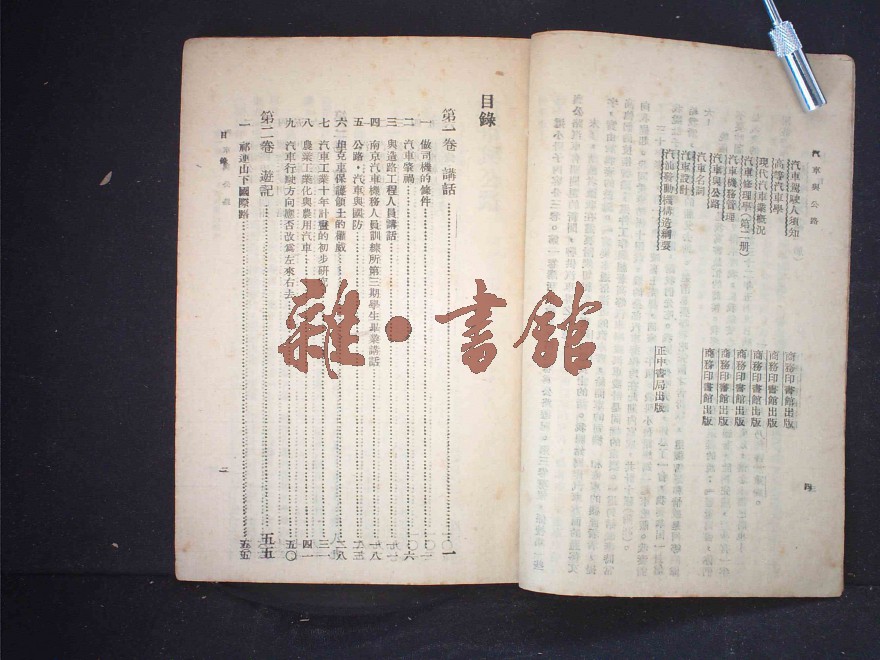 汽車與公路
四
汽車駕駛人須知
商務印書館出版
高等汽車學
商務印書館出版
現代汽車業概況
商務印書館出版
汽車修理學(第一册)
商務印書館出版
汽車機務管理
商務印書館出版
汽車與公路
商務印書館出版
汽車名詞
汽車設計
汽油發動機構造綱要
正中書局出版
目錄
第一卷 講話
一
一 做司機的條件
二 汽車肇禍
三 與造路工程人員講話
四 南京汽車機務人員訓練所第三期學生畢業講話
五 公路·汽車與國防
六 坦克車保護領土的權威
二八
七 汽車工業十年計畫的初步研究
三一
八 農業工業化與農用汽車
四一
九 汽車行駛方向應否改爲左來右去
五〇
第二卷 遊記
五五
一 祁連山下國際路
五五
目錄
二
雜·書館